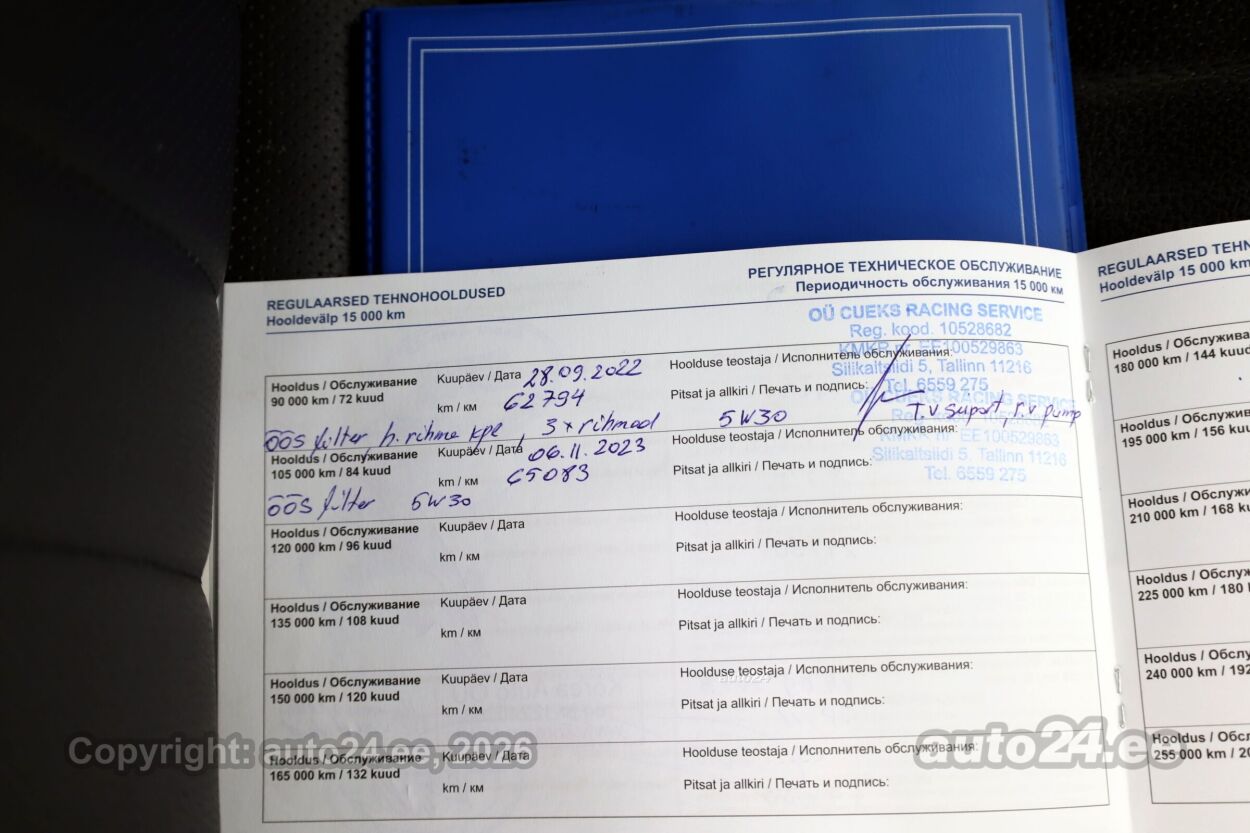 REGULAARSED TEHNOHOOLDUSED
Hooldevälp 15 000 km
РЕГУЛЯРНОЕ ТЕХНИЧЕСКОЕ ОБСЛУЖИВАНИЕ
Периодичность обслуживания 15 000 км
OÜ CUEKS RACING SERVICE
Reg. kood. 10528682
KMKR nr. EE100529863
Silikaltsiidi 5, Tallinn 11216
Tel. 6559 275
Hooldus / Обслуживание
90 000 km / 72 kuud
Kuupäev / Дата 28.09.2022
km / км 62794
Hoolduse teostaja / Исполнитель обслуживания:
Pitsat ja allkiri / Печать и подпись:
öös filter h. rihma kpl, 3x rihmad 5W30 T.V suport, r.v pump
Hooldus / Обслуживание
105 000 km / 84 kuud
Kuupäev / Дата 06.11.2023
km / км 65083
Hoolduse teostaja / Исполнитель обслуживания:
Pitsat ja allkiri / Печать и подпись:
OÜ CUEKS RACING SERVICE
KMKR nr EE100529863
Silikaltsiidi 5, Tallinn 11216
Tel. 6559 275
öös filter 5W30
Hooldus / Обслуживание
120 000 km / 96 kuud
Kuupäev / Дата
km / км
Hoolduse teostaja / Исполнитель обслуживания:
Pitsat ja allkiri / Печать и подпись:
Hooldus / Обслуживание
135 000 km / 108 kuud
Kuupäev / Дата
km / км
Hoolduse teostaja / Исполнитель обслуживания:
Pitsat ja allkiri / Печать и подпись:
Hooldus / Обслуживание
150 000 km / 120 kuud
Kuupäev / Дата
km / км
Hoolduse teostaja / Исполнитель обслуживания:
auto24
Pitsat ja allkiri / Печать и подпись:
Hooldus / Обслуживание
165 000 km / 132 kuud
Kuupäev / Дата
km / км
Hoolduse teostaja / Исполнитель обслуживания:
Pitsat ja allkiri / Печать и подпись:
REGULAARSED TEHN
Hooldevälp 15 000 km
Hooldus / Обслужива
180 000 km / 144 kuud
Hooldus / Обслужива
195 000 km / 156 kuu
Hooldus / Обслужи
210 000 km / 168 k
Hooldus / Обслуж
225 000 km / 180
Hooldus / Обслу
240 000 km / 192
Hooldus / Обс
255 000 km / 20
Copyright: auto24.ee, 2026
auto24.ee